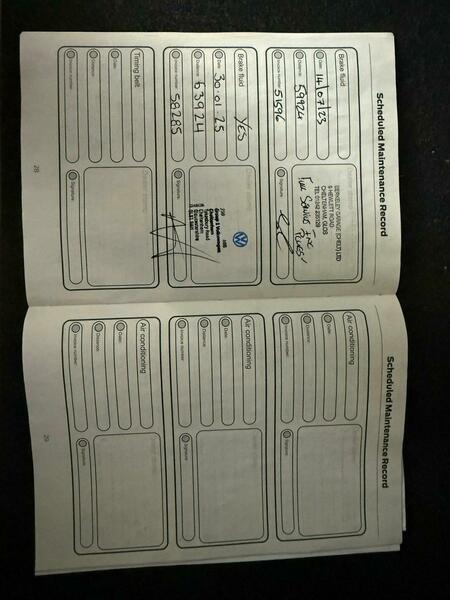 Scheduled Maintenance Record
Brake fluid
Date: 14/07/23
Distance: 59924
Invoice number: 51596
BERKELEY GARAGE (CHELT) LTD
9 HEWLETT ROAD
CHELTENHAM, GLOS
Full Service Inc
Signature:
Brake fluid YES
Date: 30.01.25
Distance: 63924
Invoice number: 58285
Signature:
Timing belt
Date:
Distance:
Invoice number:
Signature:
28
Scheduled Maintenance Record
Air conditioning
Date:
Distance:
Invoice number:
Signature:
Air conditioning
Date:
Distance:
Invoice number:
Signature:
Air conditioning
Date:
Distance:
Invoice number:
Signature:
29